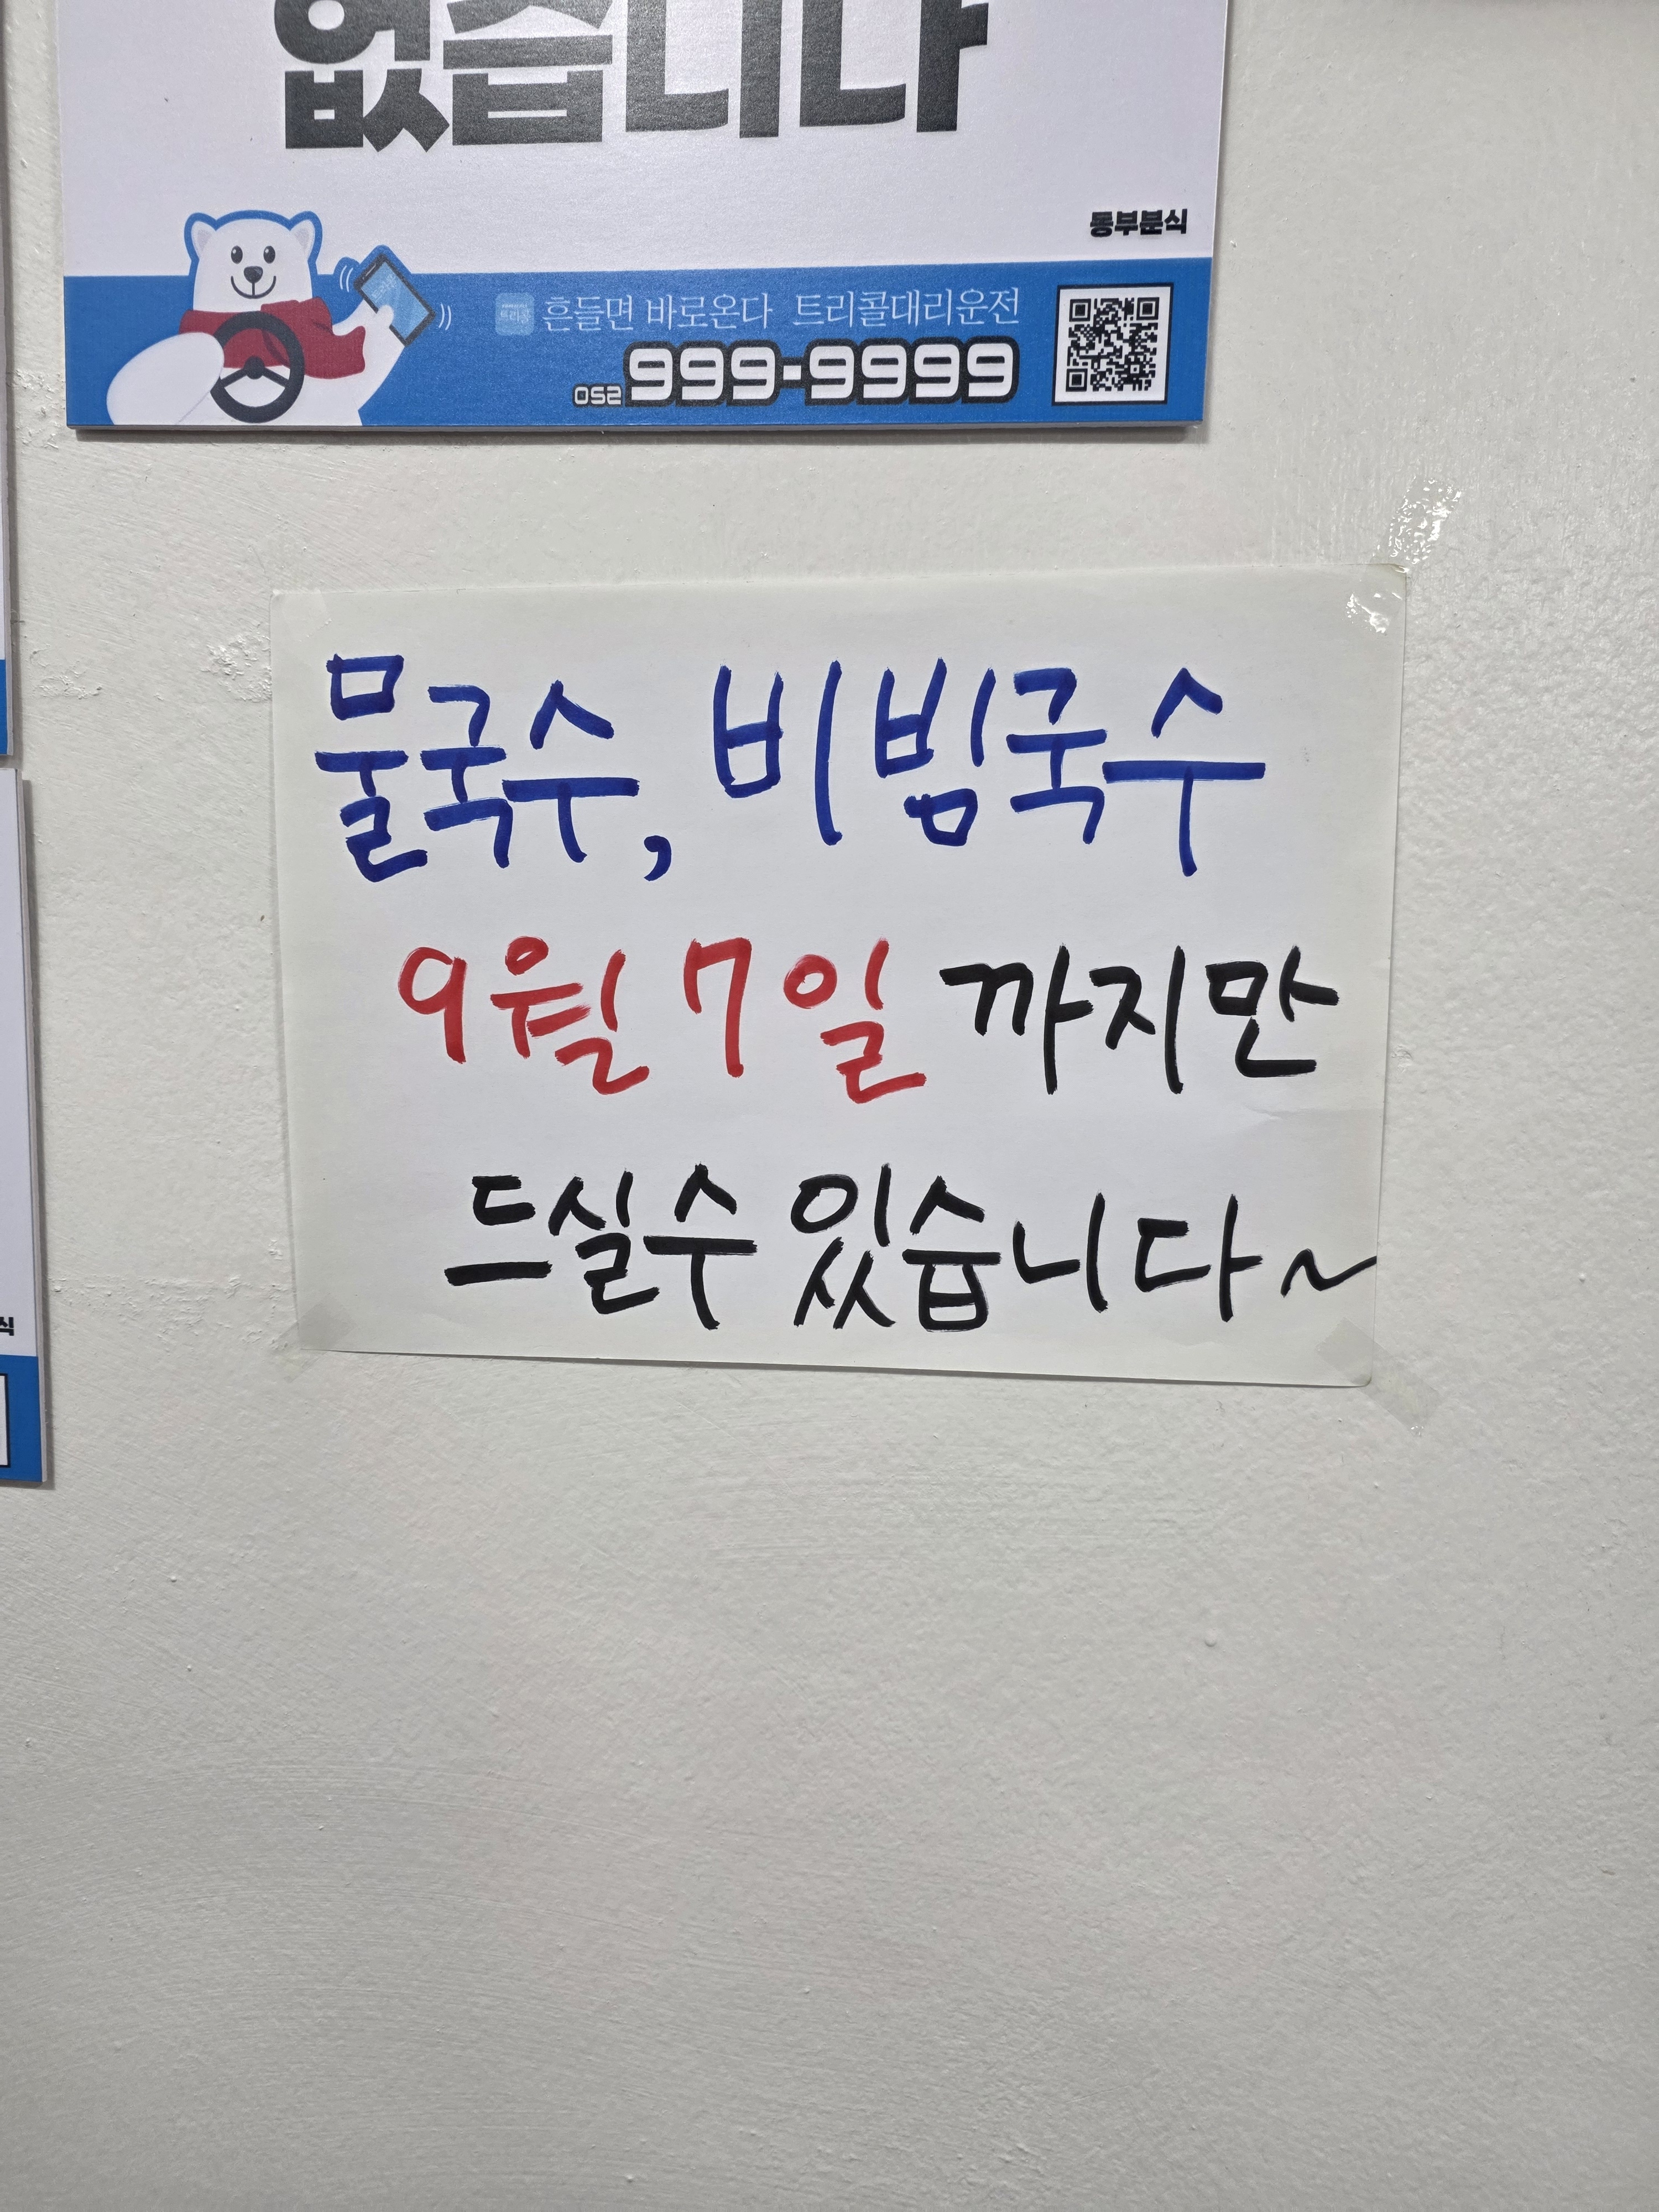 없습니다
동부분식
흔들면 바로온다 트리콜대리운전
052 999-9999
물국수, 비빔국수
9월 7일 까지만
드실수 있습니다~
식